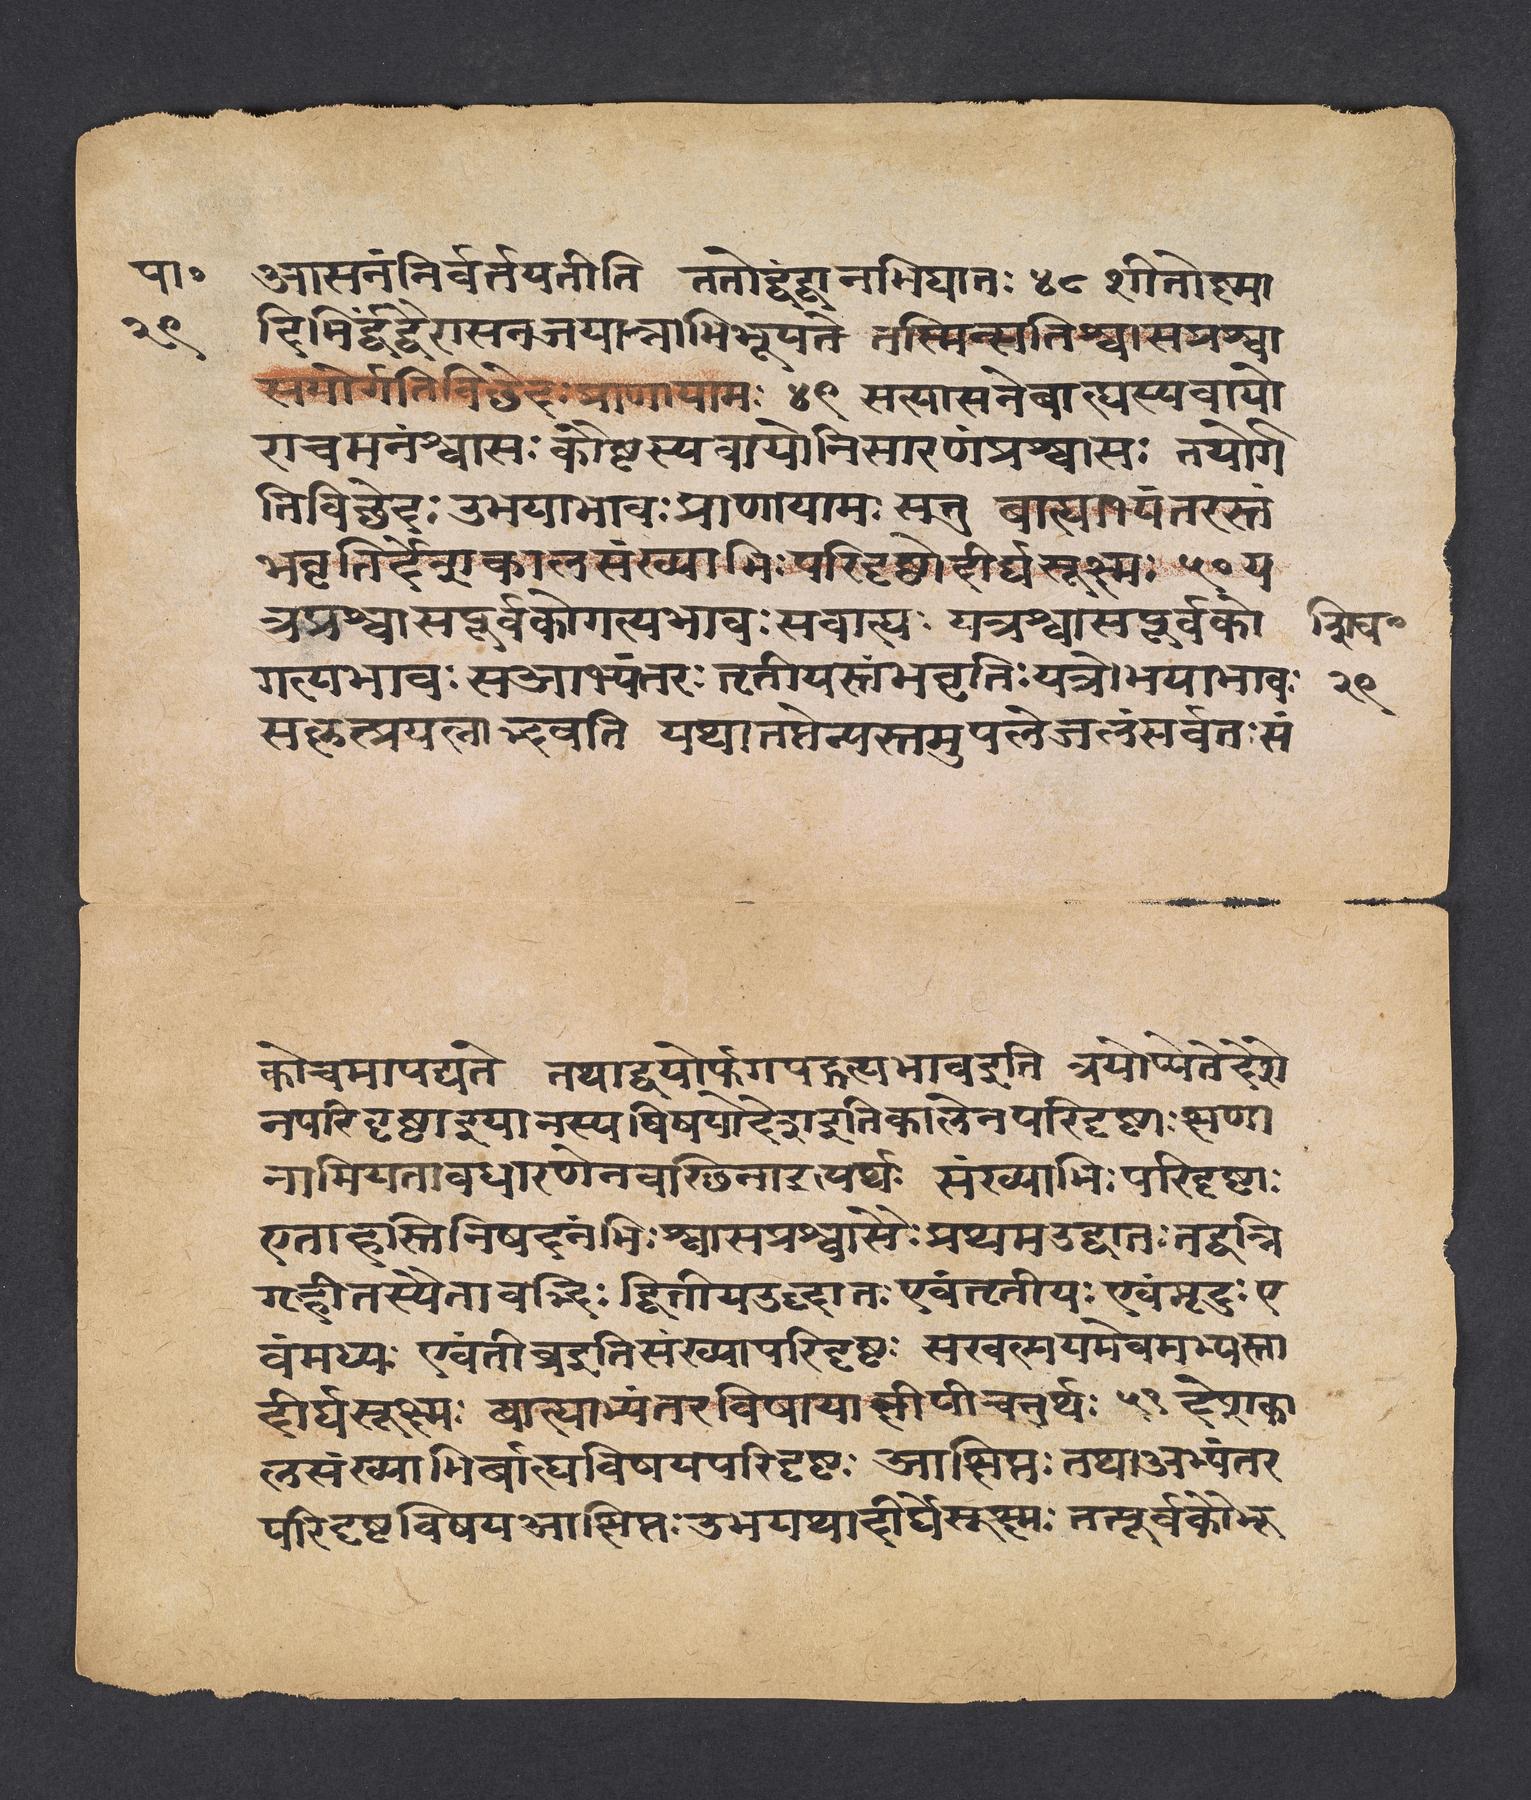 पा॰ आसनंनिर्वर्तयतीति ततोद्वंद्वानभिघातः ४८ शीतोष्मा
२९ दिभिर्द्वंद्वैरासनजयान्नाभिभूयते तस्मिन्सतिश्वासप्रश्वा
सयोर्गतिविछेदःप्राणायामः ४९ सत्यासनेबाह्यस्यवायो
राचमनंश्वासः कौष्टस्यवायोनिसारणंप्रश्वासः तयोर्ग
तिविछेदः उभयाभावःप्राणायामः सतु बाह्याभ्यंतरस्तं
भवृतिर्देशकालसंख्याभिःपरिदृष्टोदीर्घसूक्ष्मः ५० य
त्रप्रश्वासपूर्वकोगत्यभावःसबाह्यः यत्रश्वासपूर्वको शिव॰
गत्यभावः सआभ्यंतरः तृतीयस्तंभवृतिःयत्रोभयाभावः २९
सकृत्प्रयत्नाद्भवति यथातप्तेन्यस्तमुपलेजलंसर्वतःसं
कोचमापद्यते तथाद्वयोर्युगपद्गत्यभावइति त्रयोप्येतेदेशे
नपरिदृष्टाइयानस्यविषयोदेशइतिकालेनपरिदृष्टाःक्षणा
नामियतावधारणेनवछिनाइत्यर्थः संख्याभिःपरिदृष्टाः
एताद्भस्तिनिषदनंभिःश्वासप्रश्वासैःप्रथमउद्घातःतद्वन्नि
गृहीतस्यैतावद्भिःद्वितीयउद्घातःएवंतृतीयःएवंमृदुःए
वंमध्यः एवंतीव्रइतिसंख्यापरिदृष्टः सखल्वयमेवमभ्यस्ता
दीर्घसूक्ष्मः बाह्याभ्यंतरविषायाक्षीपीचतुर्थः ५१ देशका
लसंख्याभिर्बाह्यविषयपरिदृष्टः आक्षिप्तः तथाअभ्यंतर
परिदृष्टविषयआक्षिप्तःउभयथादीर्घसूक्ष्मः तत्पूर्वकोभू